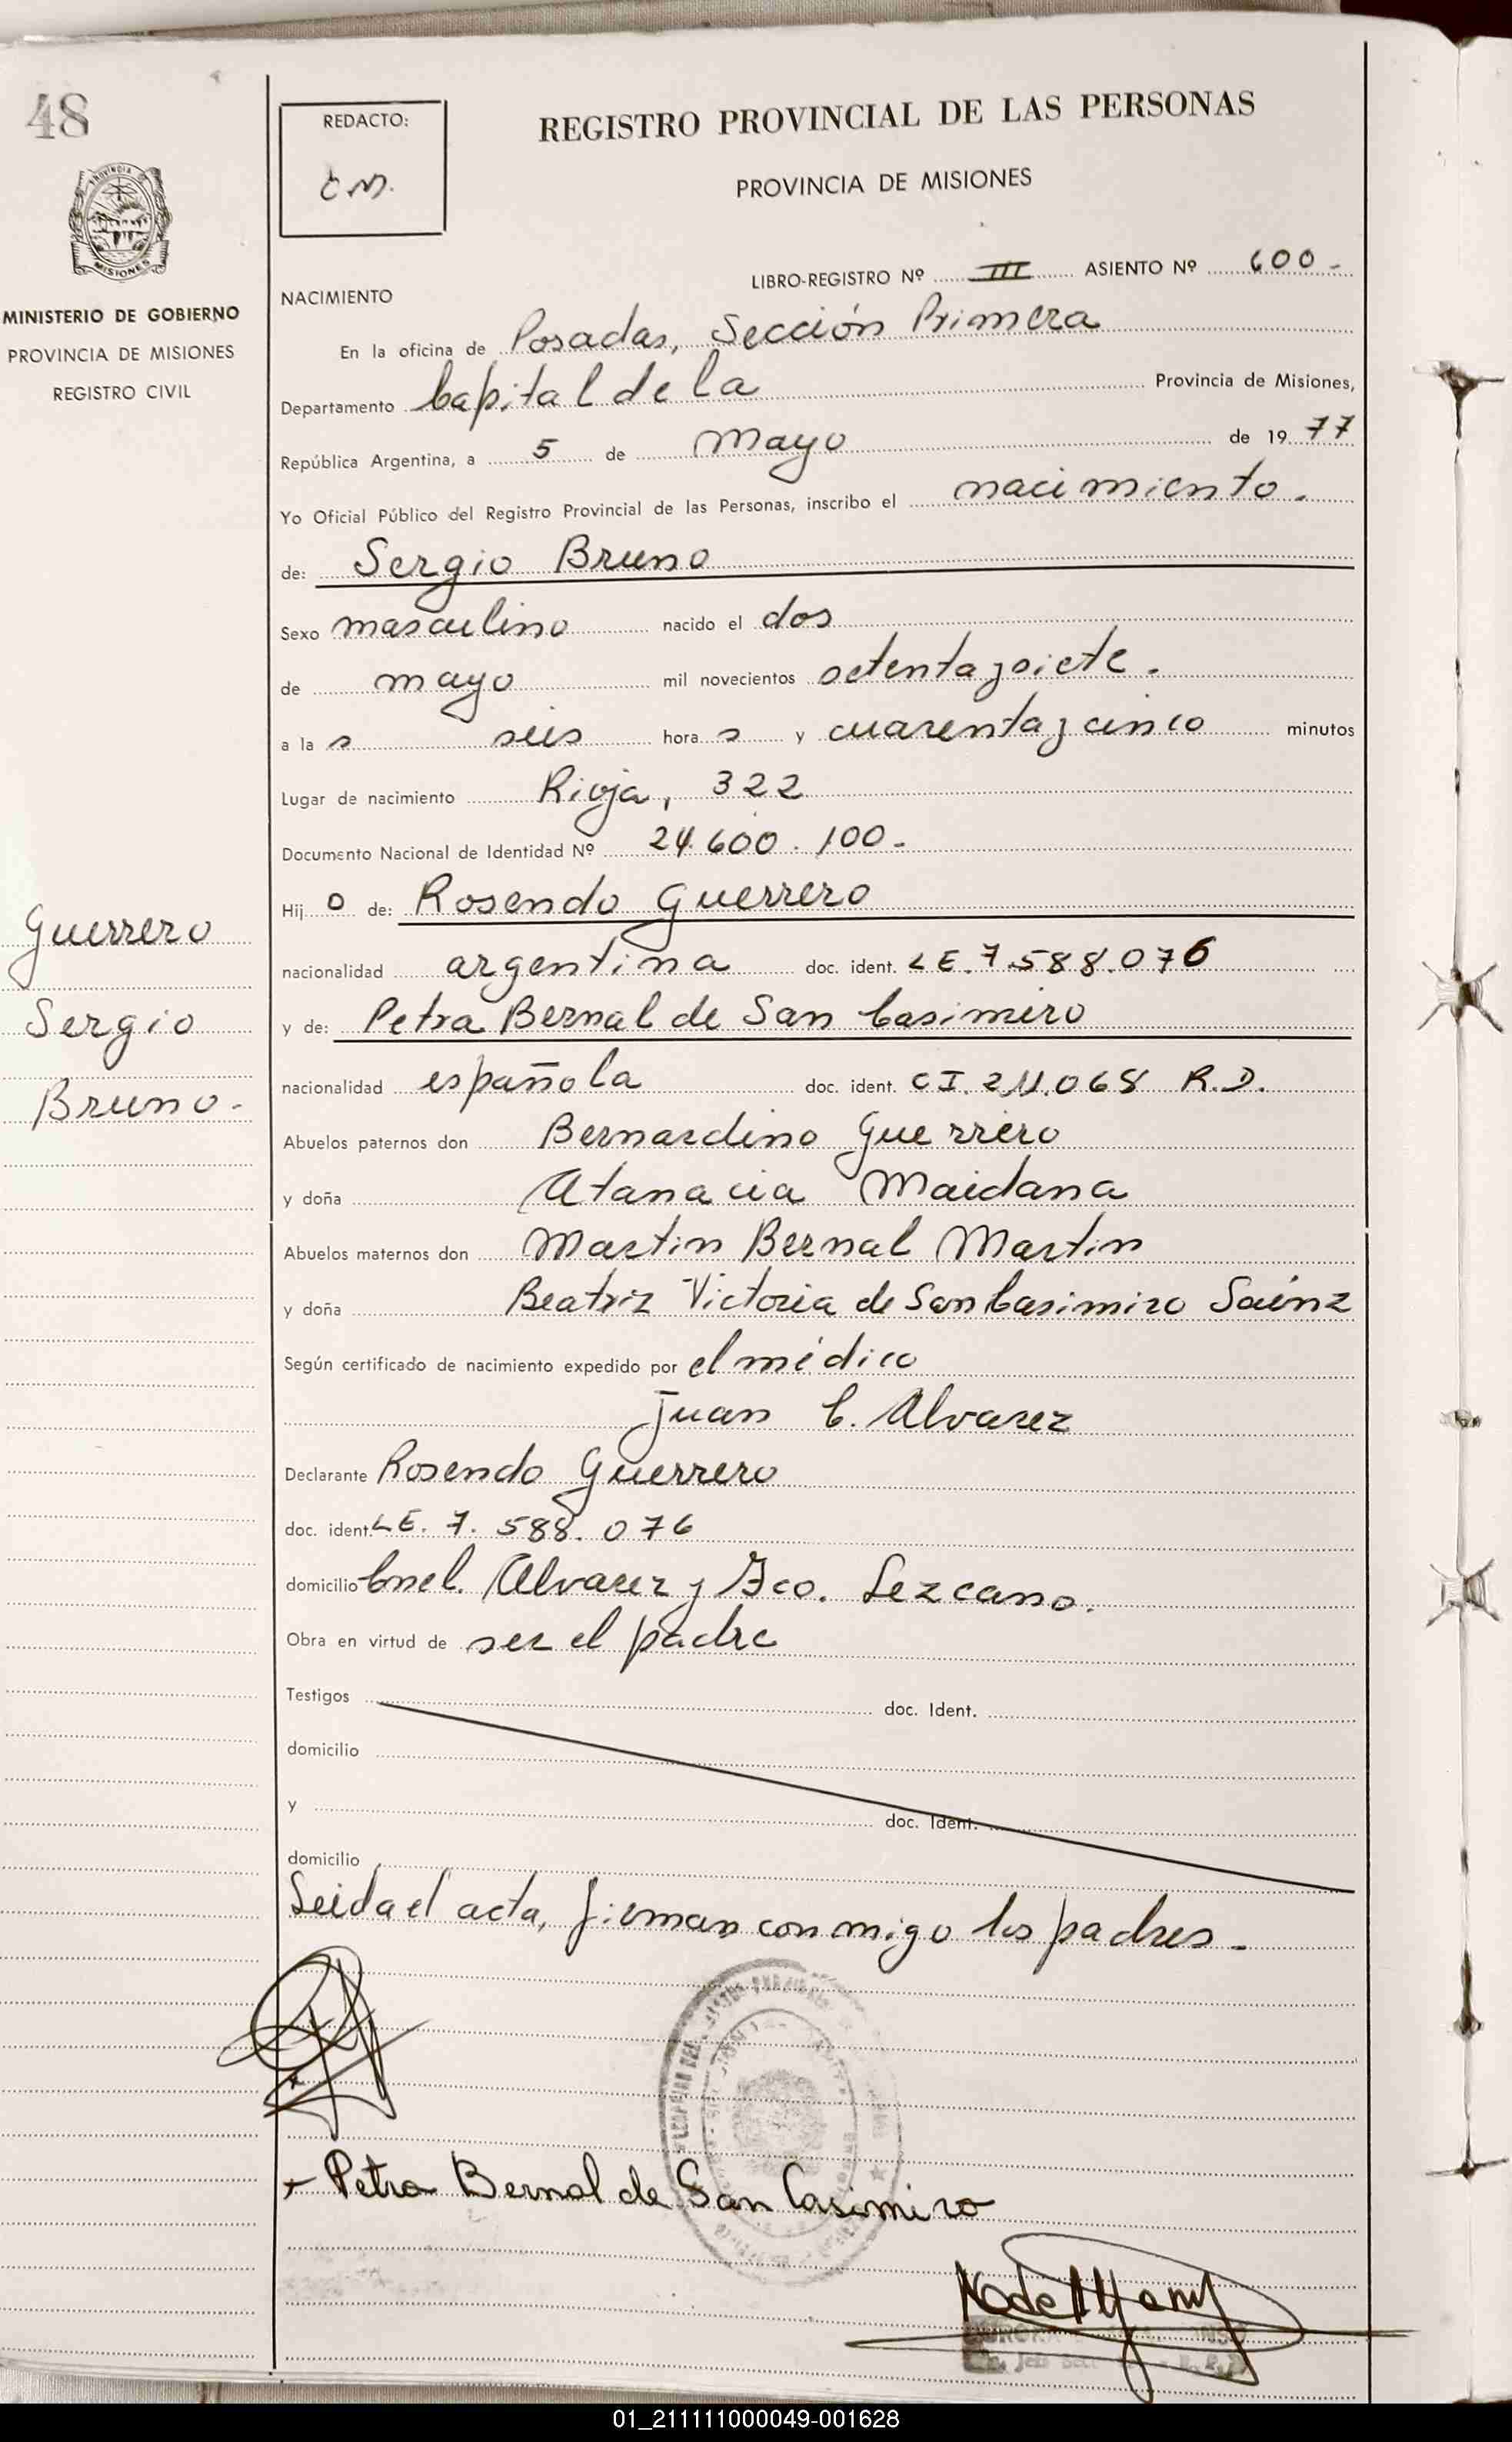 48
REDACTO:
REGISTRO PROVINCIAL DE LAS PERSONAS
PROVINCIA DE MISIONES
MISIONES
MINISTERIO DE GOBIERNO
PROVINCIA DE MISIONES
REGISTRO CIVIL
LIBRO-REGISTRO Nº III ASIENTO Nº 600-
NACIMIENTO
En la oficina de Posadas, Sección Primera
Departamento Capital de la Provincia de Misiones,
República Argentina, a 5 de mayo de 1977
Yo Oficial Público del Registro Provincial de las Personas, inscribo el nacimiento.
de: Sergio Bruno
Sexo masculino nacido el dos
de mayo mil novecientos setenta y siete.
a la s seis hora s y cuarenta y cinco minutos
Lugar de nacimiento Rioja, 322
Documento Nacional de Identidad Nº 24.600.100-
Hij o de: Rosendo Guerrero
Guerrero
nacionalidad argentina doc. ident. LE.7.588.076
Sergio
y de: Petra Bernal de San Casimiro
Bruno-
nacionalidad española doc. ident. CI. 211.068 R.D.
Abuelos paternos don Bernardino Guerrero
y doña Atanacia Maidana
Abuelos maternos don Martin Bernal Martin
y doña Beatriz Victoria de San Casimiro Saénz
Según certificado de nacimiento expedido por el médico
Juan C. Alvarez
Declarante Rosendo Guerrero
doc. ident. LE. 7. 588. 076
domicilio Cnel. Alvarez y Fco. Lezcano.
Obra en virtud de ser el padre
Testigos doc. Ident.
domicilio
y doc. Ident.
domicilio
Leida el acta, firman conmigo los padres-
Petra Bernal de San Casimiro
01_211111000049-001628